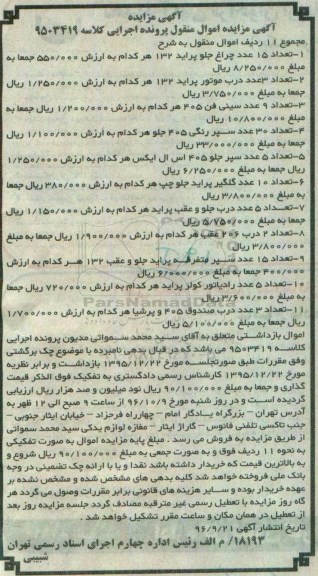 آگهی مزایده
آگهی مزایده اموال منقول پرونده اجرایی کلاسه ۹۵۰۳۴۱۹
مجموع ۱۱ ردیف اموال منقول به شرح
۱-تعداد ۱۵ عدد چراغ جلو پراید ۱۳۲ هر کدام به ارزش ۵۵۰/۰۰۰ جمعا به
مبلغ ۸/۲۵۰/۰۰۰ ریال
۲-تعداد ۳عدد درب موتور پراید ۱۳۲ هر کدام به ارزش ۱/۲۵۰/۰۰۰ ریال
جمعا به مبلغ ۳/۷۵۰/۰۰۰ ریال
۳-تعداد ۹ عدد سینی فن ۴۰۵ هر کدام به ارزش ۱/۲۰۰/۰۰۰ ریال جمعا به
مبلغ ۱۰/۸۰۰/۰۰۰ ریال
۴-تعداد ۳۰ عدد سپر رنگی ۴۰۵ جلو هر کدام به ارزش ۱/۱۰۰/۰۰۰ ریال
جمعا به مبلغ ۳۳/۰۰۰/۰۰۰ ریال
۵-تعداد ۵ عدد سپر جلو ۴۰۵ اس ال ایکس هر کدام به ارزش ۱/۲۵۰/۰۰۰
ریال جمعا به مبلغ ۶/۲۵۰/۰۰۰ ریال
۶-تعداد ۱۰ عدد گلگیر پراید جلو چپ هر کدام به ارزش ۳۸۰/۰۰۰ ریال جمعا
به مبلغ ۳/۸۰۰/۰۰۰ ریال
۷-تعداد ۵ عدد درب جلو و عقب پراید هر کدام به ارزش ۱/۱۵۰/۰۰۰ ریال
جمعا به مبلغ ۵/۷۵۰/۰۰۰ ریال
۸-تعداد ۲ درب ۲۰۶ عقب هر کدام به ارزش ۱/۹۰۰/۰۰۰ ریال جمعا به مبلغ
۳/۸۰۰/۰۰۰ ریال
۹-تعداد ۱۵ عدد سپر متفرقه پراید جلو و عقب ۱۳۲ هر کدام به ارزش
۴۰۰/۰۰۰ جمعا به مبلغ ۶/۰۰۰/۰۰۰ ریال
۱۰-تعداد ۵ عدد رادیاتور کولر پراید هر کدام به ارزش ۷۲۰/۰۰۰ ریال جمعا
به مبلغ ۳/۶۰۰/۰۰۰ ریال
۱۱-تعداد ۳ عدد درب صندوق ۴۰۵ و پرشیا هر کدام به ارزش ۱/۷۰۰/۰۰۰
ریال جمعا به مبلغ ۵/۱۰۰/۰۰۰ ریال
اموال بازداشتی متعلق به آقای سید محمد سمواتی مدیون پرونده اجرایی
کلاسه ۹۵۰۳۴۱۹ می باشد که در قبال بدهی نامبرده با موضوع چک برگشتی
وفق مقررات طبق صورتجلسه مورخ ۱۳۹۵/۱۲/۲۲ بازداشت و برابر نظریه
مورخ ۱۳۹۵/۱۲/۲۲ کارشناس رسمی دادگستری به تفکیک فوق الذکر قیمت
گذاری و جمعا به مبلغ ۹۰/۱۰۰/۰۰۰ ریال نود میلیون و صد هزار ریال ارزیابی
گردیده است و در روز شنبه مورخ ۹۶/۱۰/۹ از ساعت ۹ صبح الی ۱۲ ظهر به
آدرس تهران – بزرگراه یادگار امام – چهارراه فرحزاد – خیابان ایثار جنوبی –
جنب تاکسی تلفنی فانوس – گاراژ ایثار – مغازه لوازم یدکی سید محمد سمواتی
از طریق مزایده به فروش می رسد . مبلغ پایه مزایده اموال به صورت تفکیکی
به نحوه ۱۱ ردیف فوق و به صورت جمعی به مبلغ ۹۰/۱۰۰/۰۰۰ ریال شروع و
به بالاترین قیمت که خریدار داشته باشد نقدا و یا با ارائه چک تضمینی در وجه
بانک ملی فروخته خواهد شد کلیه بدهی های مشخص شده و مشخص نشده بر
عهده خریدار بوده و سایر هزینه های قانونی برابر مقررات وصول می گردد هر
گاه روز مزایده با تعطیل رسمی غیر مترقبه مصادف گردد جلسه مزایده روز بعد
از تعطیل در همان مکان و ساعت مقرر تشکیل خواهد شد .
تاریخ انتشار آگهی ۹۶/۹/۲۱
۱۸۱۹۳/ م الف رئیس اداره چهارم اجرای اسناد رسمی تهران
شبیبی
ParsNamadData